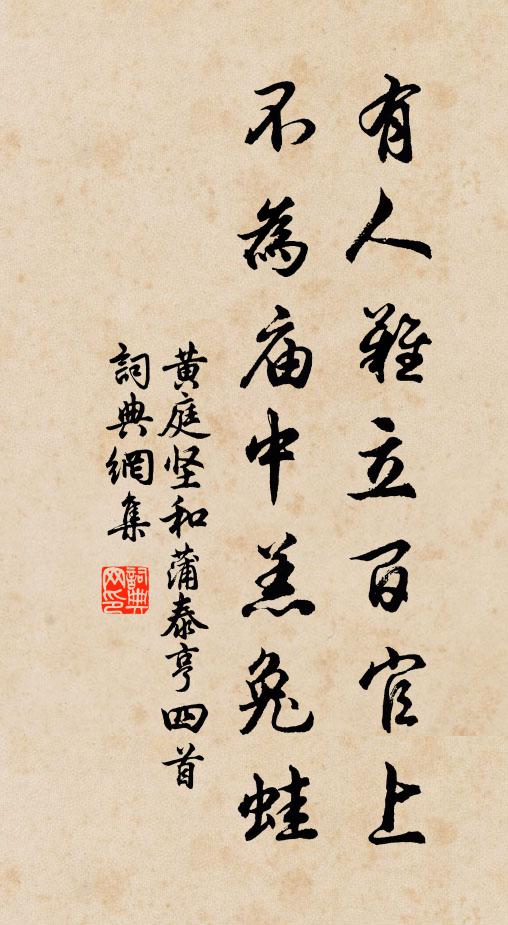 有人雖立百官上
不為庙中羔兔蛙
黄庭坚和蒲泰亨四首
詞典網集
詞典
网印